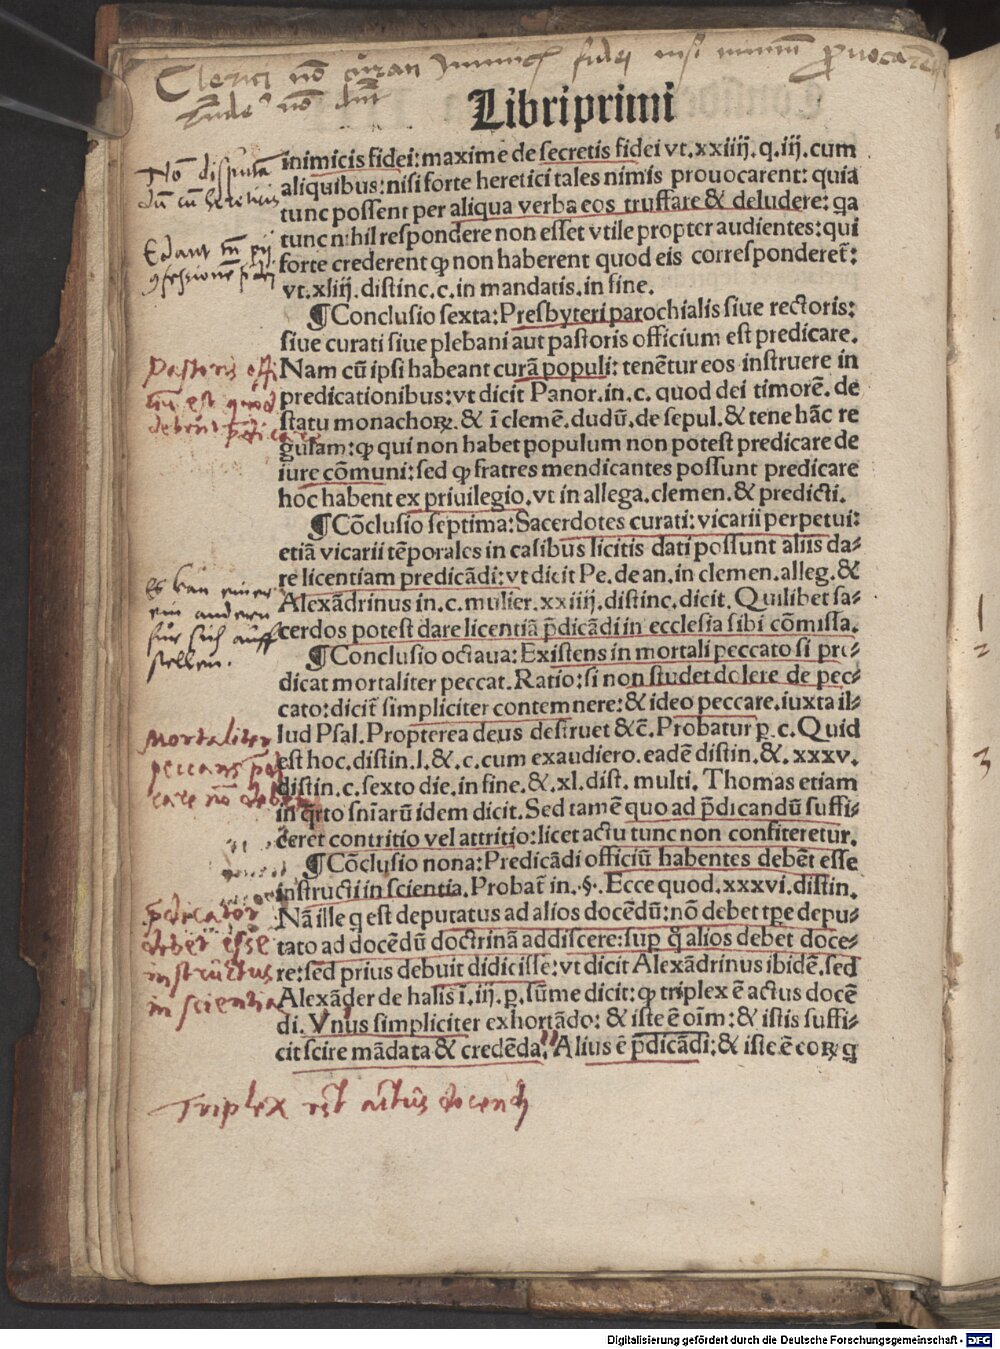 Clerici nō
Libri primi
inimicis fidei: maxime de secretis fidei vt. xxiiij. q. iij. cum
aliquibus: nisi forte heretici tales nimis prouocarent: quia
tunc possent per aliqua verba eos truffare & deludere: qa
tunc nihil respondere non esset vtile propter audientes: qui
forte crederent ꝙ non haberent quod eis corresponderēt:
vt. xliij. distinc. c. in mandatis. in fine.
¶ Conclusio sexta: Presbyteri parochialis siue rectoris:
siue curati siue plebani aut pastoris officium est predicare.
Nam cū ipsi habeant curā populi: tenētur eos instruere in
predicationibus: vt dicit Panor. in. c. quod dei timorē. de
statu monachoꝝ. & ī clemē. dudū. de sepul. & tene hāc re
gulam: ꝙ qui non habet populum non potest predicare de
iure cōmuni: sed ꝙ fratres mendicantes possunt predicare
hoc habent ex priuilegio. vt in allega. clemen. & predicti.
¶ Cōclusio septima: Sacerdotes curati: vicarii perpetui:
etiā vicarii tēporales in casibus licitis dati possunt aliis da⸗
re licentiam predicādi: vt dicit Pe. de an. in clemen. alleg. &
Alexādrinus in. c. mulier. xxiiij. distinc. dicit. Quilibet sa⸗
cerdos potest dare licentiā p̄dicādi in ecclesia sibi cōmissa.
¶ Conclusio octaua: Existens in mortali peccato si pre⸗
dicat mortaliter peccat. Ratio: si non studet dolere de pec⸗
cato: dicit̄ simpliciter contemnere: & ideo peccare. iuxta il⸗
lud Psal. Propterea deus destruet &c̄. Probatur p. c. Quid
est hoc. distin. l. & . c. cum exaudiero. eadē distin. & . xxxv.
distin. c. sexto die. in fine. & . xl. dist. multi. Thomas etiam
in q̄rto sniarū idem dicit. Sed tamē quo ad p̄dicandū suffi⸗
ceret contritio vel attritio: licet actu tunc non confiteretur.
¶ Cōclusio nona: Predicādi officiū habentes debēt esse
instructi in scientia. Probat̄ in. §. Ecce quod. xxxvi. distin.
Nā ille q est deputatus ad alios docēdū: nō debet tpe depu⸗
tato ad docēdū doctrinā addiscere: sup q̄ alios debet doce⸗
re: sed prius debuit didicisse: vt dicit Alexādrinus ibidē. sed
Alexāder de halis ī. iij. p. sūme dicit: ꝙ triplex ē actus docē
di. Vnus simpliciter exhortādo: & iste ē oīm: & istis suffi⸗
cit scire mādata & credēda. Alius ē p̄dicādi: & iste ē eoꝝ q
Nō disputā
dū cū hereticis
Pastoris offi
tiū est quod
debent p̄dicare
es kan einer
ein andern
für sich auff
stellen.
Mortaliter
peccans
care nō debet
p̄dicator
debet esse
instructus
in scientia
Triplex est actus docendi
1
2
3
Digitalisierung gefördert durch die Deutsche Forschungsgemeinschaft - DFG